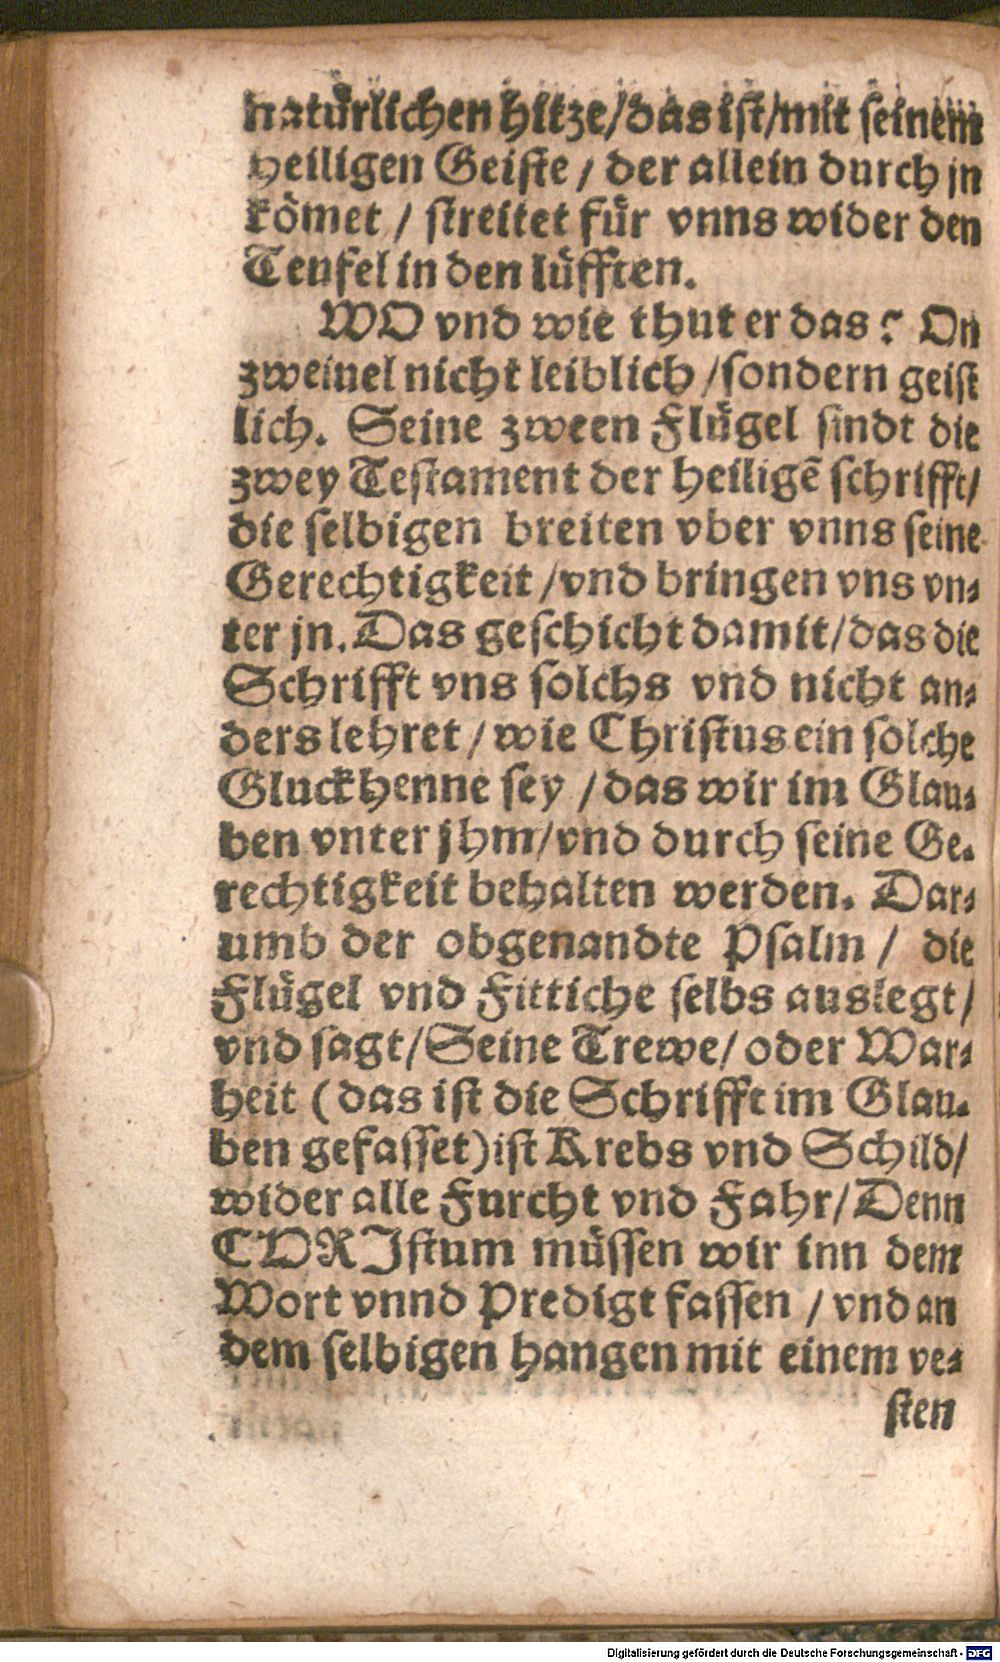 natürlichen hitze/das ist/mit seinem
heiligen Geiste / der allein durch jn
kömet / streitet für vnns wider den
Teufel in den lüfften.
WO vnd wie thut er das? On
zweiuel nicht leiblich /sondern geist
lich. Seine zween Flügel sindt die
zwey Testament der heiligẽ schrifft/
die selbigen breiten vber vnns seine
Gerechtigkeit /vnd bringen vns vn⸗
ter jn. Das geschicht damit/das die
Schrifft vns solchs vnd nicht an⸗
ders lehret /wie Christus ein solche
Gluckhenne sey /das wir im Glau⸗
ben vnter jhm/vnd durch seine Ge⸗
rechtigkeit behalten werden. Dar⸗
umb der obgenandte Psalm / die
Flügel vnd Fittiche selbs auslegt/
vnd sagt/Seine Trewe/ oder War⸗
heit (das ist die Schrifft im Glau⸗
ben gefasset)ist Krebs vnd Schild/
wider alle Furcht vnd Fahr/Denn
CVRJstum müssen wir inn dem
Wort vnnd Predigt fassen /vnd an
dem selbigen hangen mit einem ve⸗
sten
Digitalisierung gefördert durch die Deutsche Forschungsgemeinschaft - DFG